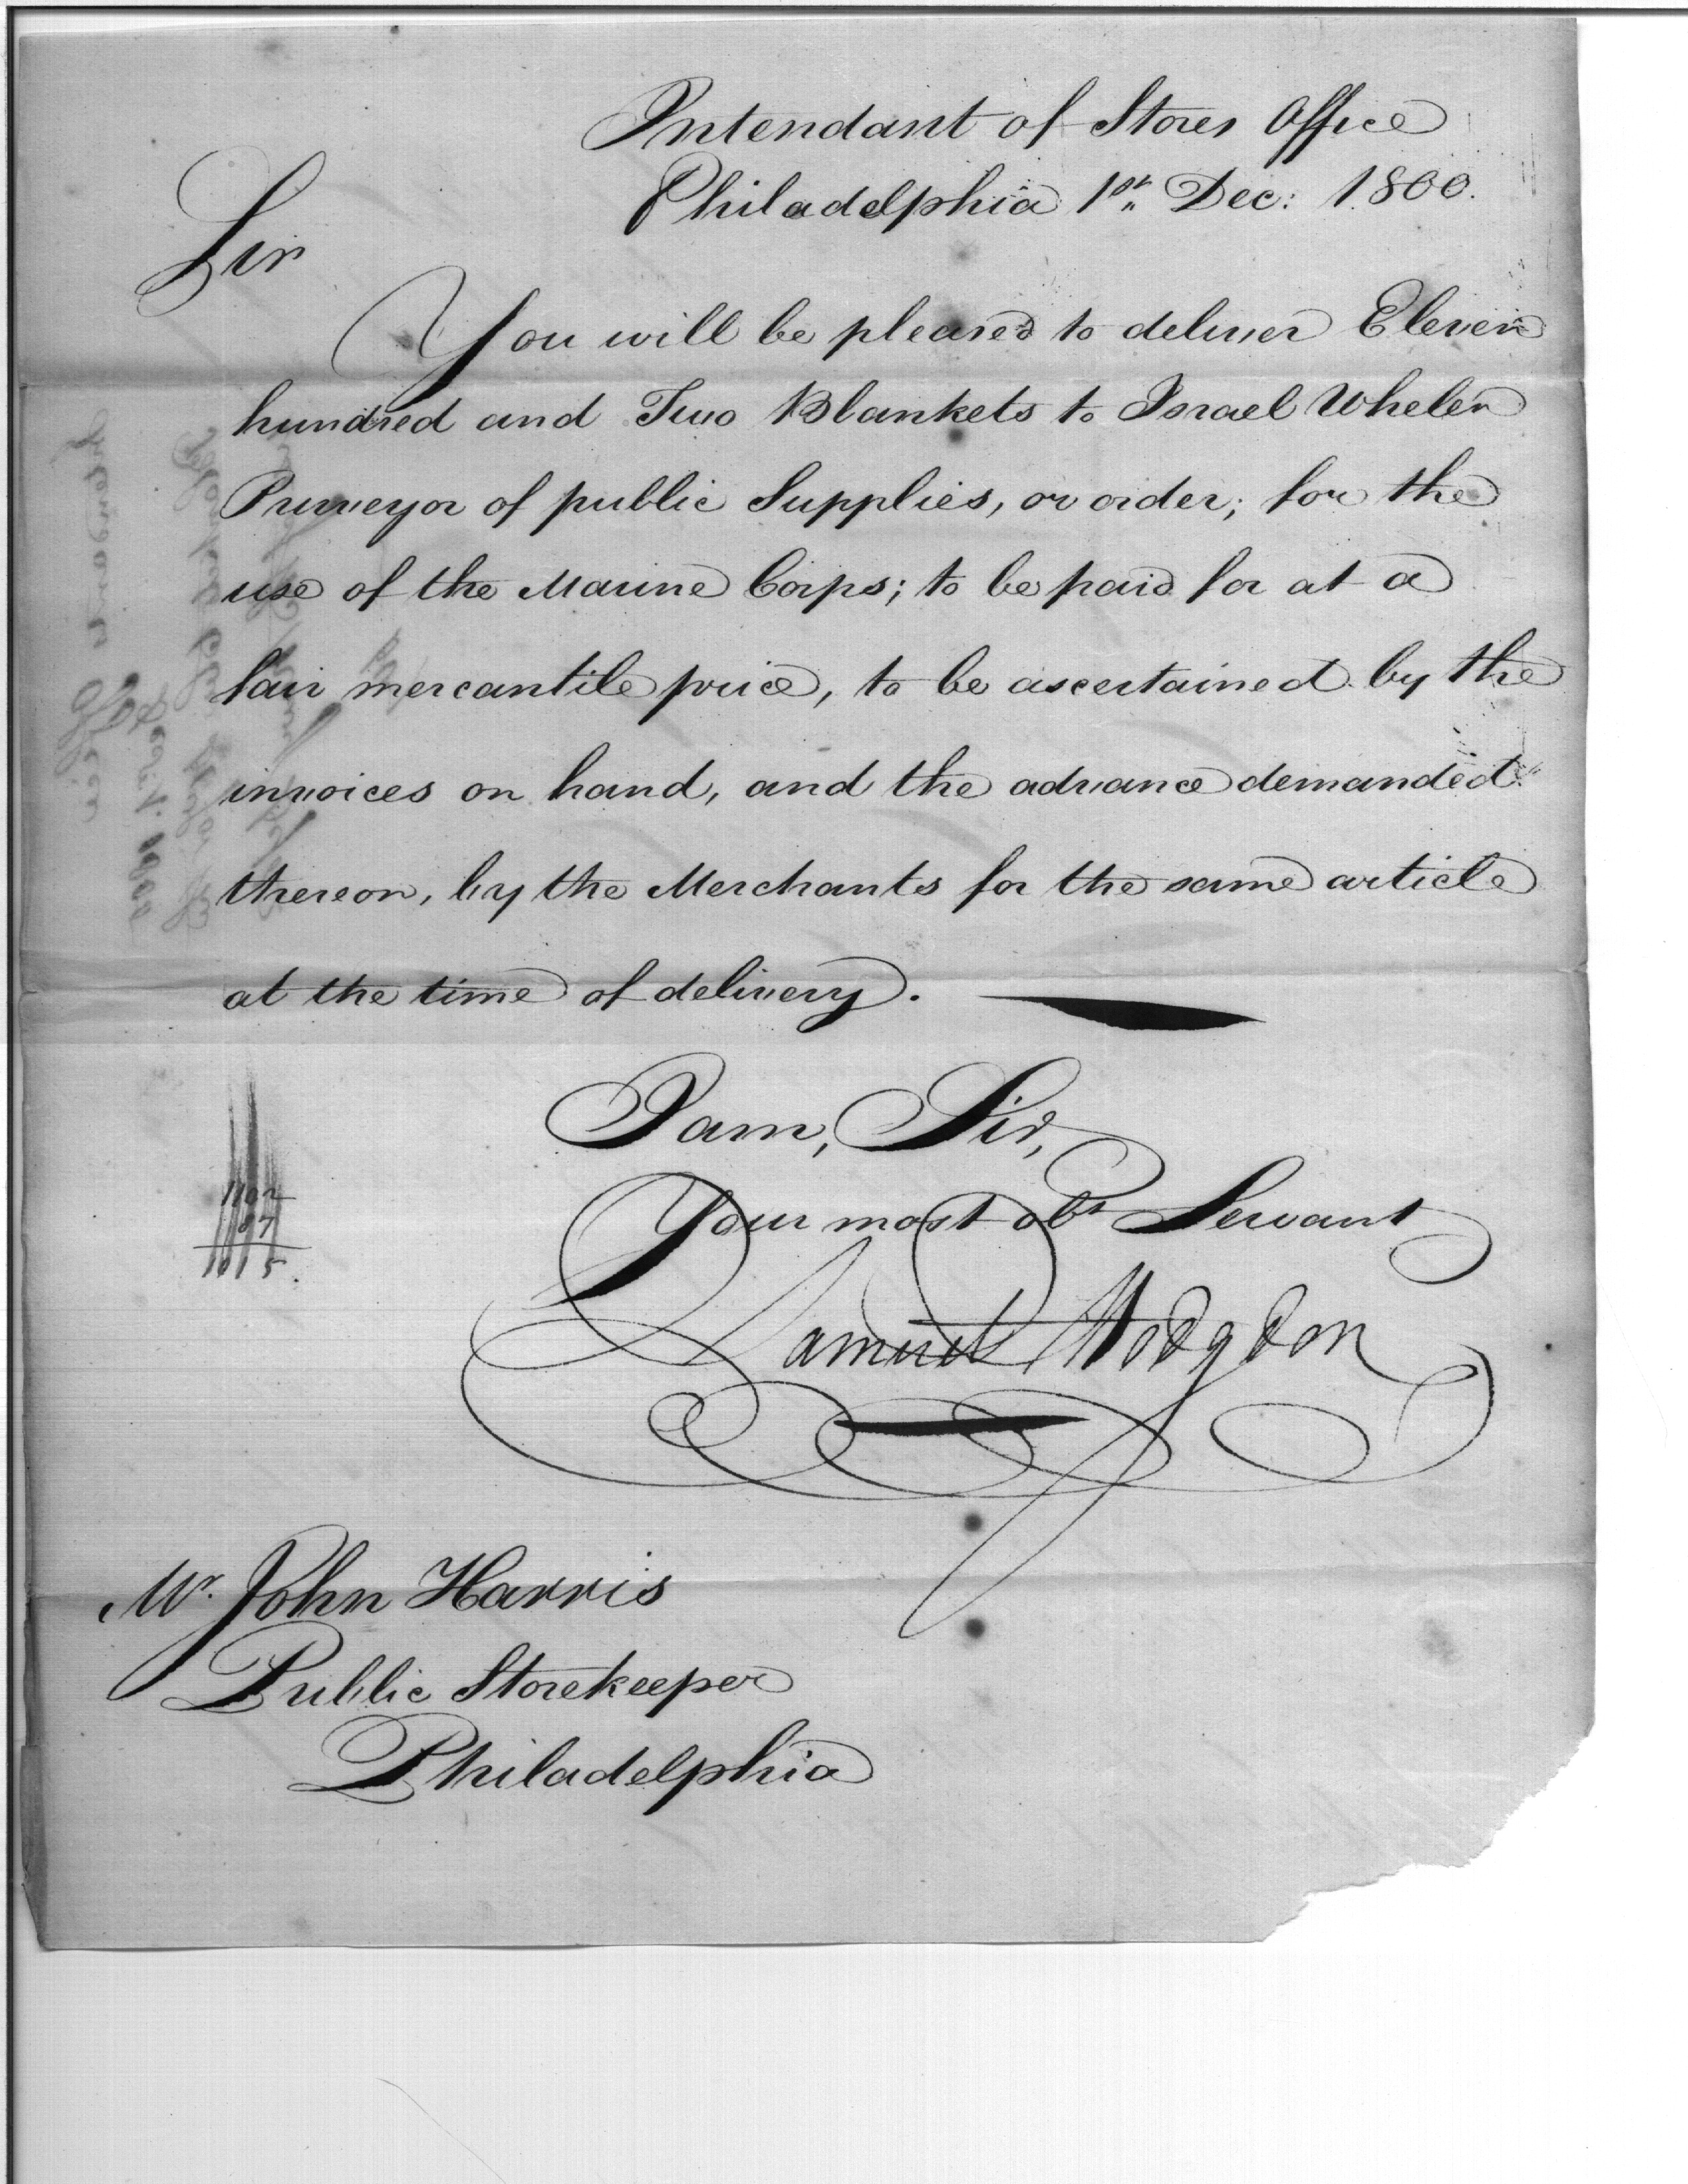 Intendant of Stores Office
Philadelphia 1st Dec: 1800.
Sir
You will be pleased to deliver Eleven
hundred and Two Blankets to Israel Whelen
Purveyor of public Supplies, or order; for the
use of the Marine Corps; to be paid for at a
fair mercantile price, to be ascertained by the
invoices on hand, and the advance demanded
thereon, by the Merchants for the same article
at the time of delivery.
I am, Sir,
Your most obt Servant
Samuel Hodgdon
1102
87
1015
Mr. John Harris
Public Storekeeper
Philadelphia